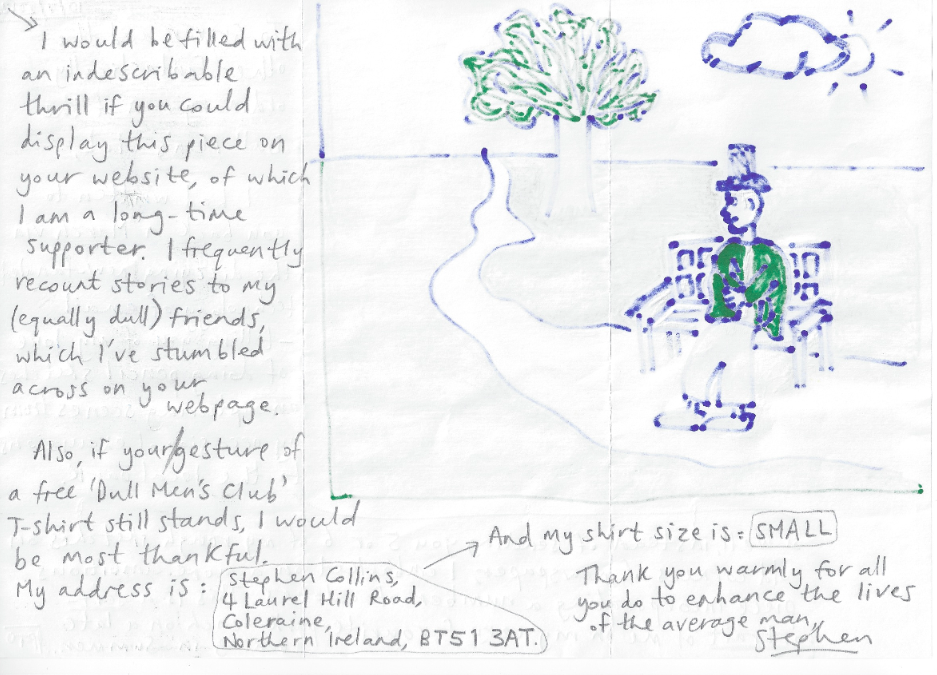 I would be filled with
an indescribable
thrill if you could
display this piece on
your website, of which
I am a long-time
supporter. I frequently
recount stories to my
(equally dull) friends,
which I've stumbled
across on your
webpage.
Also, if your gesture of
a free 'Dull Men's Club'
T-shirt still stands, I would
be most thankful.
My address is:
Stephen Collins,
4 Laurel Hill Road,
Coleraine,
Northern Ireland, BT51 3AT.
And my shirt size is: SMALL
Thank you warmly for all
you do to enhance the lives
of the average man,
Stephen